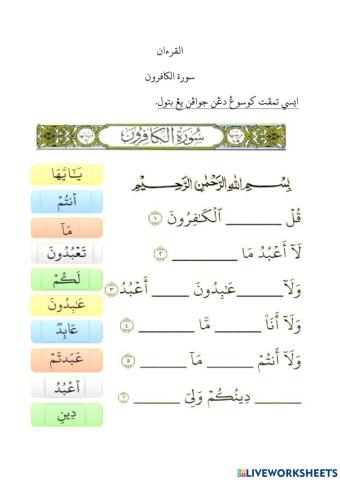 القرءان
سورة الكافرون
ايسي تمڤت كوسوڠ دڠن جواڤن يڠ بتول.
سُورَةُ الكَافِرُونَ
بِسْمِ اللَّهِ الرَّحْمَٰنِ الرَّحِيمِ
قُلْ ________ ٱلْكَٰفِرُونَ ١
لَآ أَعْبُدُ مَا ________ ٢
وَلَآ ________ عَٰبِدُونَ ________ أَعْبُدُ ٣
وَلَآ أَنَا۠ ________ مَّا ________ ٤
وَلَآ أَنتُمْ ________ مَآ ________ ٥
________ دِينُكُمْ وَلِىَ ________ ٦
يَٰٓأَيُّهَا
أَنتُمْ
مَآ
تَعْبُدُونَ
لَكُمْ
عَٰبِدُونَ
عَابِدٌ
عَبَدتُّمْ
أَعْبُدُ
دِينِ
LIVEWORKSHEETS